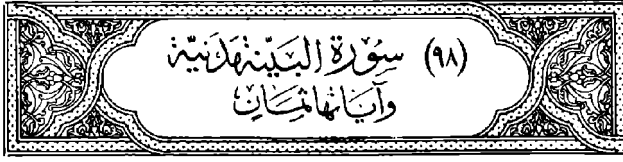 (٩٨) سُورَة البَيِّنَة مَدَنيَّة
وَآيَاتهَا ثَمَان